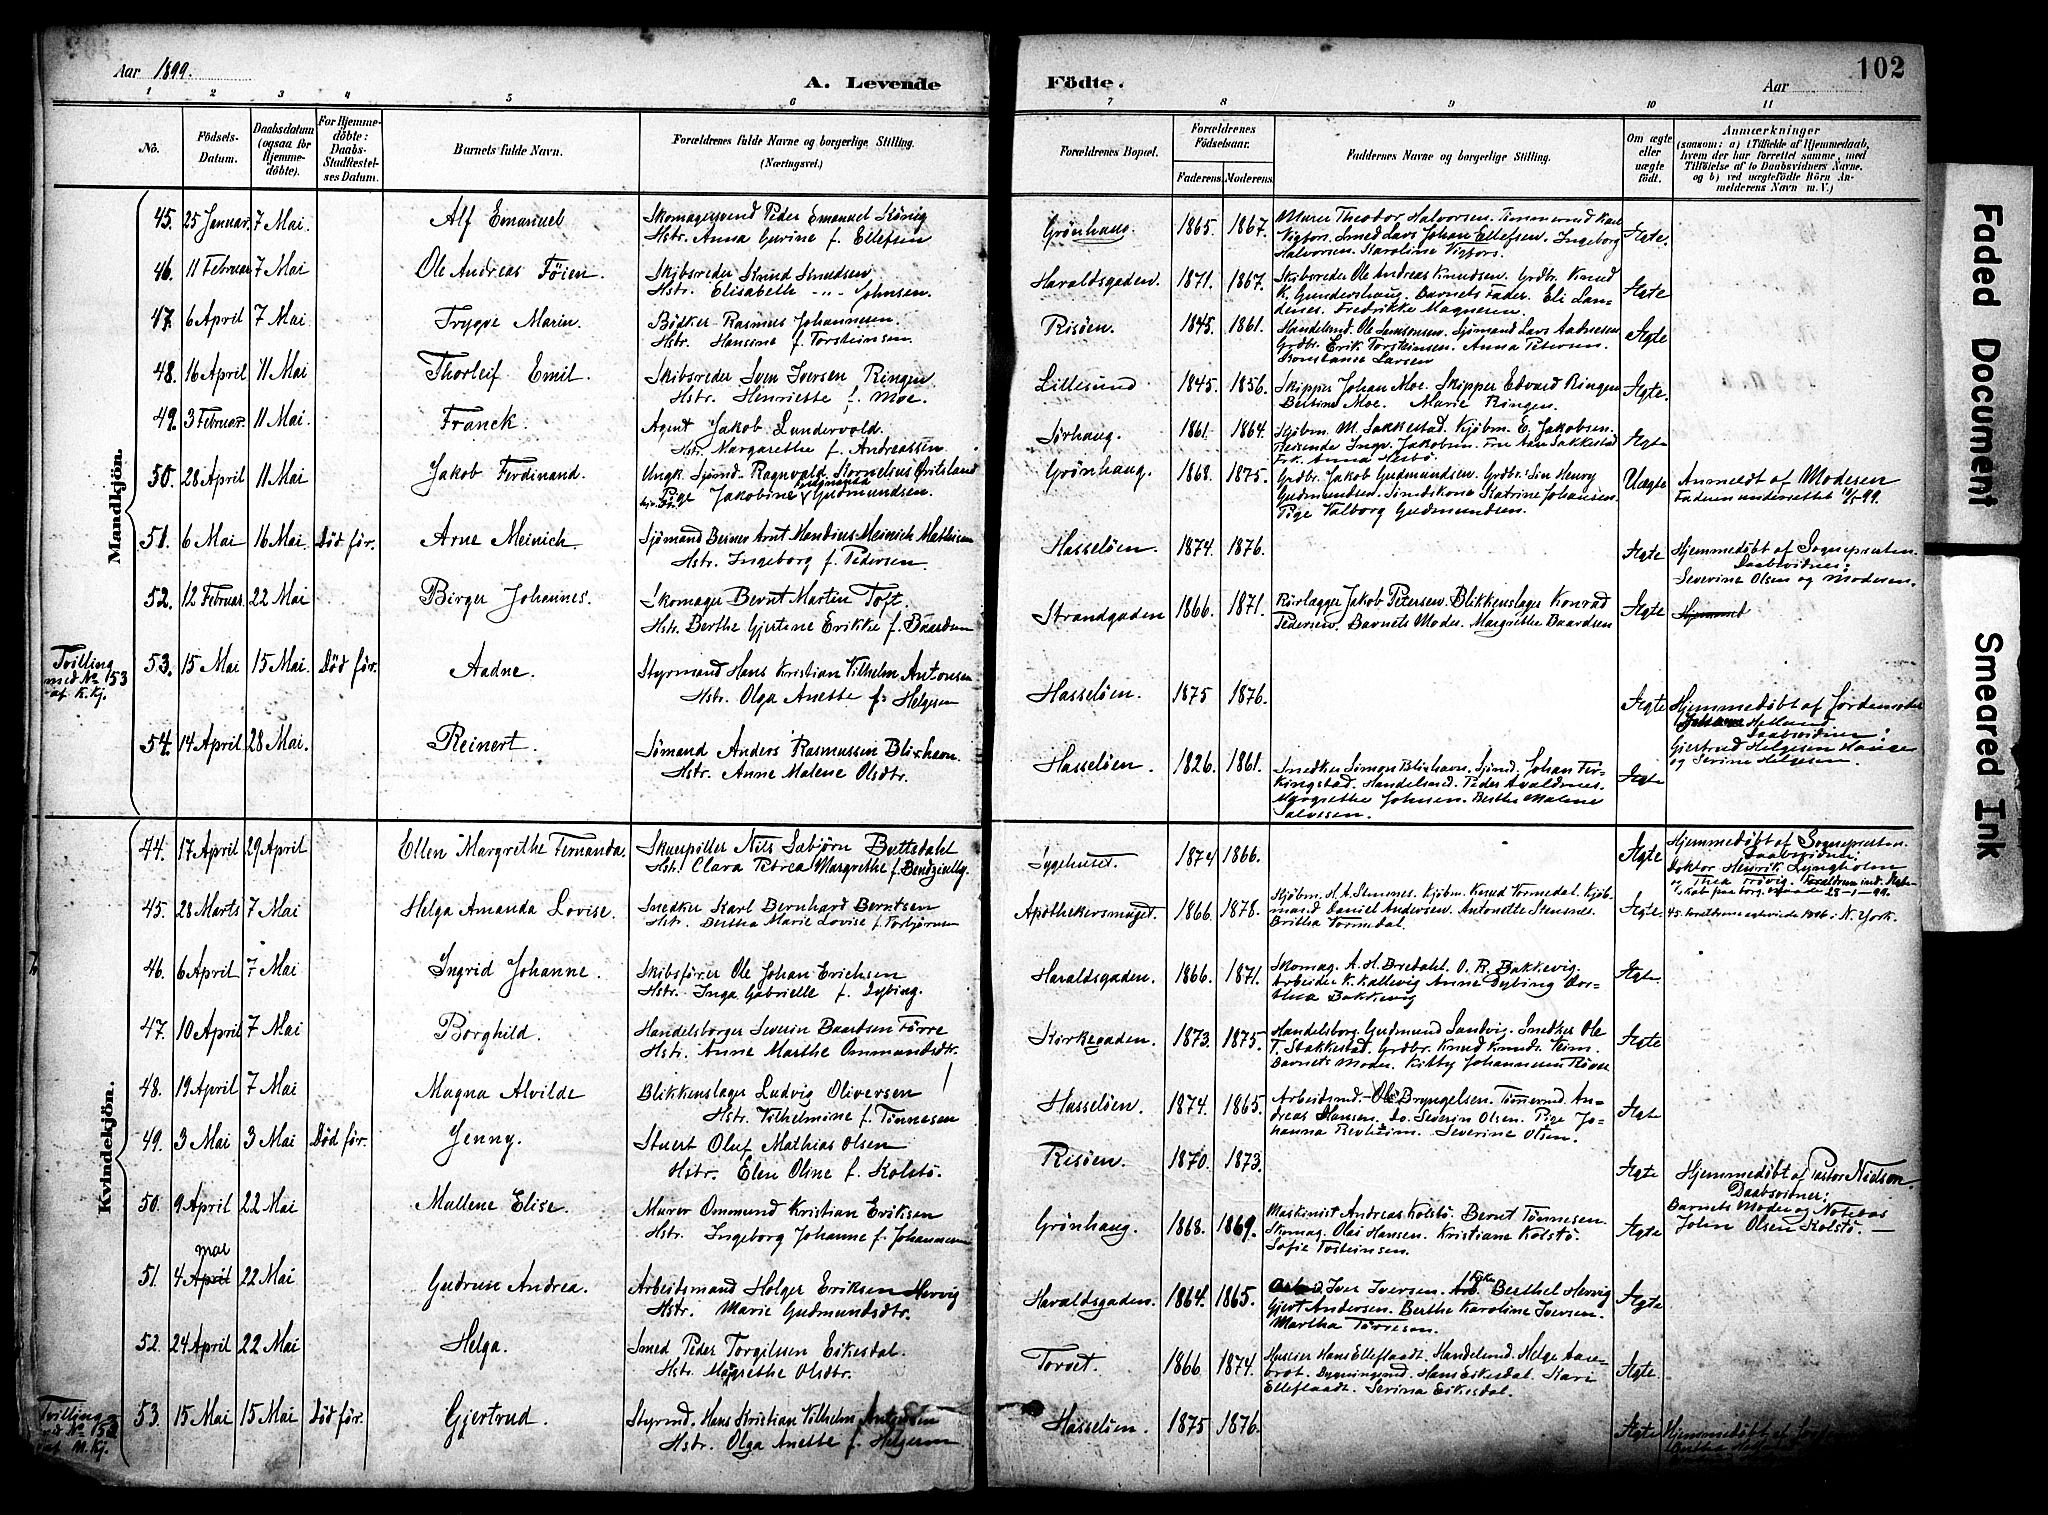 Aar 1899.
A. Levende
Födte.
Aar
102
1 2 3 4 5 6 7 8 9 10 11
No.
Födsels-
Datum.
Daabsdatum
(ogsaa for
Hjemme-
döbte).
For Hjemme-
döbte:
Daabs-
Stadfæstel-
ses Datum.
Barnets fulde Navn.
Forældrenes fulde Navne og borgerlige Stilling.
(Næringsvei.)
Forældrenes Bopæl.
Forældrenes
Födselsaar.
Faderens. Moderens.
Faddernes Navne og borgerlige Stilling.
Om ægte
eller
uægte
født.
Anmærkninger
(saasom: a) i Tilfælde af Hjemmedaab,
hvem der har forrettet samme, med
Tilföielse af to Daabsvidners Navne.
og b) ved uægtefødte Börn An-
melderens Navn m. V.)
Mandkjön.
45. 25 Januar. 7 Mai. Alf Emanuel
Skomagersvend Peder Emanuel König
Hstr. Anna Gurine f. Ellefsen
Grønhaug. 1865. 1867.
Murer Theodor Halvorsen. Tømmermd Karl
Vigfors. Smed Lars Johan Ellefsen. Ingeborg
Halvorsen. Karoline Vigfors.
Ægte.
46. 11 Februar 7 Mai. Ole Andreas Föien.
Skibsreder Knud Knudsen
Hstr. Elisabeth -"- Johnsen.
Haraldsgaden. 1871. 1867.
Skibsreder Ole Andreas Knudsen. Grdbr. Knud
K. Gundershaug. Barnets Fader. Eli Lan-
denes. Fredrikke Magnesen.
Ægte
47. 6 April 7 Mai. Trygve Marin.
Bødker Rasmus Johannesen.
Hstr. Hansine f. Torsteinsen.
Risöen. 1845. 1861.
Handelsmd. Ole Samsonsen. Sjömand Lars Aadnesen
Grdbr. Erik Torsteinsen. Anna Petersen.
Konstanse Larsen
Ægte
48. 16 April 11 Mai Thorleif Emil.
Skibsreder Sven Iversen Ringen
Hstr. Henriette f. Moe.
Lillesund 1845. 1856.
Skipper Johan Moe. Skipper Edvard Ringen
Bertine Moe. Marie Ringen.
Ægte.
49. 3 Februar. 11 Mai. Franck.
Agent Jakob Lundervold.
Hstr. Margarethe f. Andreassen
Sörhaug. 1861. 1864.
Kjöbm. M. Sakkestad. Kjöbm. E. Jakobsen.
Reisende Ingv. Jakobsen. Fru Ane Sakkestad
Frk. Anna Nesbö.
Ægte
50. 28 April 11 Mai Jakob Ferdinand.
Ungk. Sjömd. Ragnvald Kornelius Oritsland
Pige Jakobine Gudmundsen.
Grønhaug. 1868. 1875.
Grdbr. Jakob Gudmundsen. Grdbr. Sin Henry
Gudmundsen. Smedskone Katrine Johansen
Pige Valborg Gudmundsen.
Uægte
Anmeldt af Moderen
Faderen underrettet
51. 6 Mai 16 Mai. Död før. Arne Meinich.
Sjömand Berner Arnt Mandius Meinich Mathisen
Hstr. Ingeborg f. Pedersen
Hasselöen. 1874. 1876.
Ægte
Hjemmedøbt af Sognepresten.
Daabsvidner:
Severine Olsen og Moderen.
52. 12 Februar. 22 Mai Birger Johannes.
Skomager Bernt Martin Toft.
Hstr. Berthe Gjertine Erikke f. Baardsen
Strandgaden 1866. 1871.
Rörlægger Jakob Petersen. Blikkenslager Konrad
Pedersen. Barnets Moder. Margrethe Baardsen
Ægte
Tvilling
med No 153
af K.Kj.
53. 15 Mai 15 Mai. Död før. Aadne.
Styrmand Hans Kristian Vilhelm Antonsen
Hstr. Olga Anette f. Helgesen
Hasselöen. 1875 1876.
Ægte
Hjemmedøbt af Jordemoder
Hetland.
Daabsvidner:
Gjertrud Helgesen Hauge
og Serine Helgesen.
54. 14 April 28 Mai. Reinert.
Sømand Anders Rasmussen Blixhavn
Hstr. Anne Malene Olsdtr.
Hasselöen. 1826. 1861.
Snedker Simon Blixhavn. Sjömd. Johan Fer-
kingstad. Handelsmd. Peder Avaldsnes.
Margrethe Johnsen. Berthe Malene
Salvesen.
Ægte
Kvindekjön.
44. 17 April 29 April Ellen Margrethe Fernanda.
Skuespiller Nils Sæbjörn Buttedahl
Hstr. Clara Petrea Margrethe f. Bendzielly.
Sygehuset. 1874 1866.
Ægte
Hjemmedøbt af Sognepresten.
Daabsvidner:
Doktor Henrik Lyngholm
og Thea Tidvig.
45. 28 Marts 7 Mai Helga Amanda Lovise.
Snedker Karl Bernhard Berntsen
Hstr. Bertha Marie Lovise f. Torbjörnsen
Apothekersmuget. 1866. 1878.
Kjöbm. H. A. Stensnes. Kjöbm. Knud Tormedal. Kjöb-
mand Daniel Andersen. Antonette Stensnes.
Britha Tormedal.
Ægte.
N. York.
46. 6 April 7 Mai Ingrid Johanne.
Skibsfører Ole Johan Erichsen
Hstr. Inga Gabrielle f. Dybing.
Haraldsgaden. 1866. 1871.
Skomag. A. H. Bredahl. O. R. Bakkevig.
Arbeider K. Kallevig Anne Dybing Dor-
thea Bakkevig
Ægte
47. 10 April 7 Mai Borghild.
Handelsborger Severin Baardsen Förre
Hstr. Anne Marthe Ommundsdtr.
Kirkegaden. 1873. 1875.
Handelsborg. Gudmund Sandvig. Snedker Ole
T. Stakkestad. Grdbr. Knud Knuds. Kim.
Barnets Moder. Kitty Johannesen Röver
Ægte
48. 19 April 7 Mai Magna Alvilde
Blikkenslager Ludvig Oliversen
Hstr. Vilhelmine f. Tönnesen
Hasselöen. 1874. 1865.
Arbeidsmd. Ole Bryngelsen. Tömmermd. An-
dreas Hansen. do. Severin Olsen. Pige Jo-
hanna Revheim. Severine Olsen.
Ægte
49. 3 Mai 3 Mai Död før. Jenny.
Stuert Oluf Mathias Olsen
Hstr. Elen Oline f. Kolstö.
Risöen. 1870. 1873.
Ægte
Hjemmedøbt af Pastor Nielson.
Daabsvidner:
Barnets Moder og Notbas
John Olsen Kolstö.
50. 9 April 22 Mai Mallene Elise.
Murer Ommund Kristian Eriksen
Hstr. Ingeborg Johanne f. Johannesen
Grönhaug. 1868. 1869.
Maskinist Andreas Kolstö. Bernt Tönnesen.
Skomag. Olai Hansen. Kristiane Kolstö.
Sofie Tosteinsen.
Ægte
51. 4 April mai 22 Mai Gudrun Andrea.
Arbeidsmand Holger Eriksen Hervig
Hstr. Marie Gudmundsdtr.
Haraldsgaden. 1864. 1865.
Iver Iversen. Berthel Hervig
Gjert Andersen. Berthe Karoline Iversen.
Martha Tönnesen.
Ægte
52. 24 April 22 Mai Helga.
Smed Peder Torgilsen Eikesdal.
Hstr. Margrethe Olsdtr.
Torvet. 1866 1874.
Huseier Hans Elleflaadt. Handelsmd. Helge Aare-
brot. Bygningsmd. Hans Eikesdal. Kari
Elleflaadt. Serina Eikesdal.
Ægte
Tvilling
No 153
af M.Kj.
53. 15 Mai 15 Mai Död før. Gjertrud.
Styrmd. Hans Kristian Vilhelm Antonsen
Hstr. Olga Anette f. Helgesen
Hasselöen. 1875 1876.
Ægte
Hjemmedøbt af
Faded Document
Smeared Ink